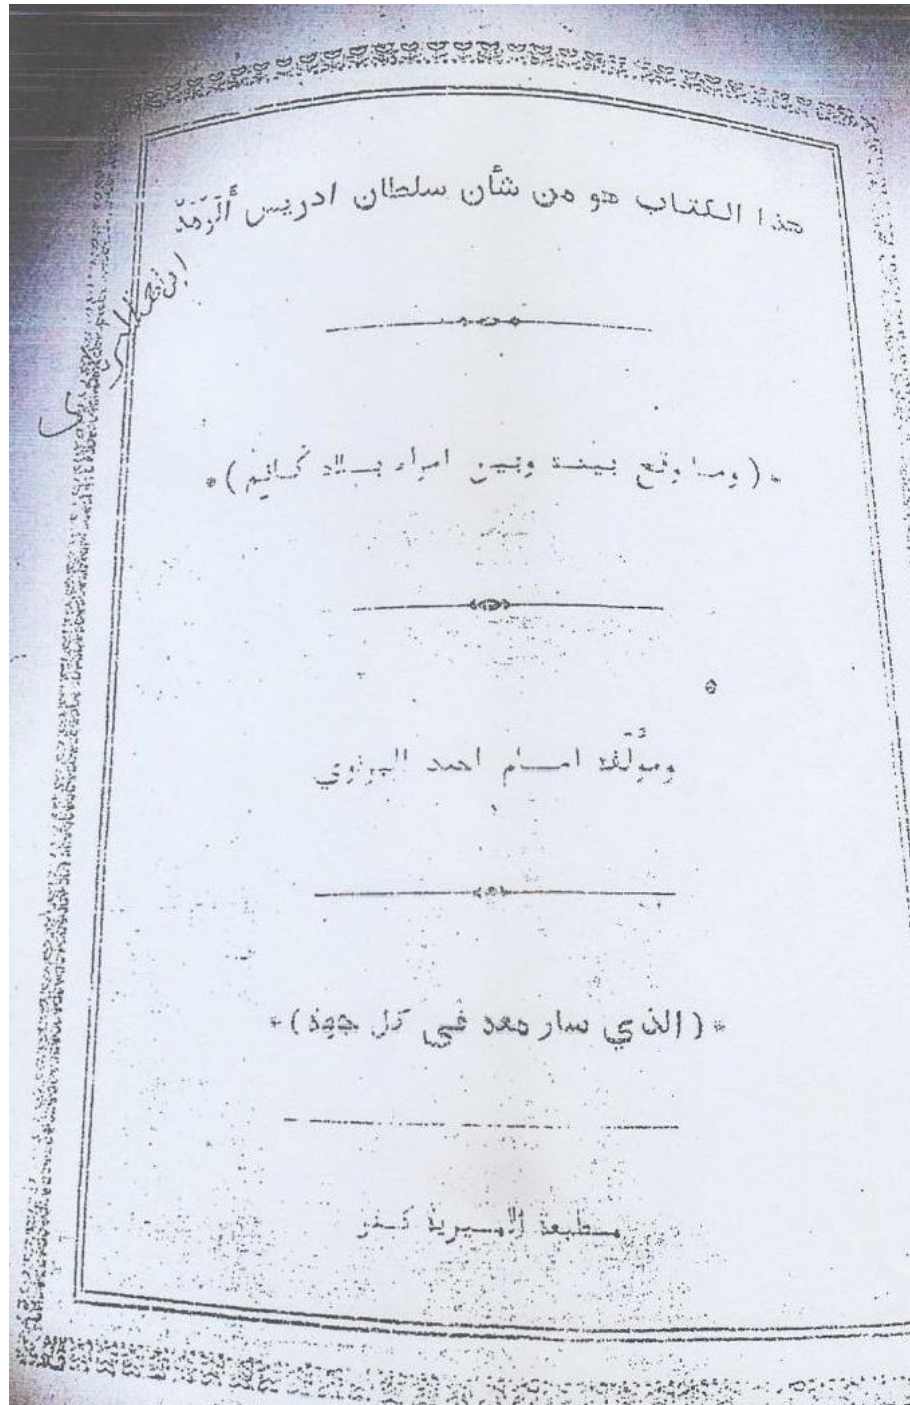 هذا الكتاب هو من شأن سلطان ادريس ألَوَمَّ
ابن
*(وما وقع بينه وبين امراء بلاد كانم)*
ومؤلّفه امام احمد البرناوي
*(الذي سار معه في كل جهة)*
مطبعة الاميرية كنو